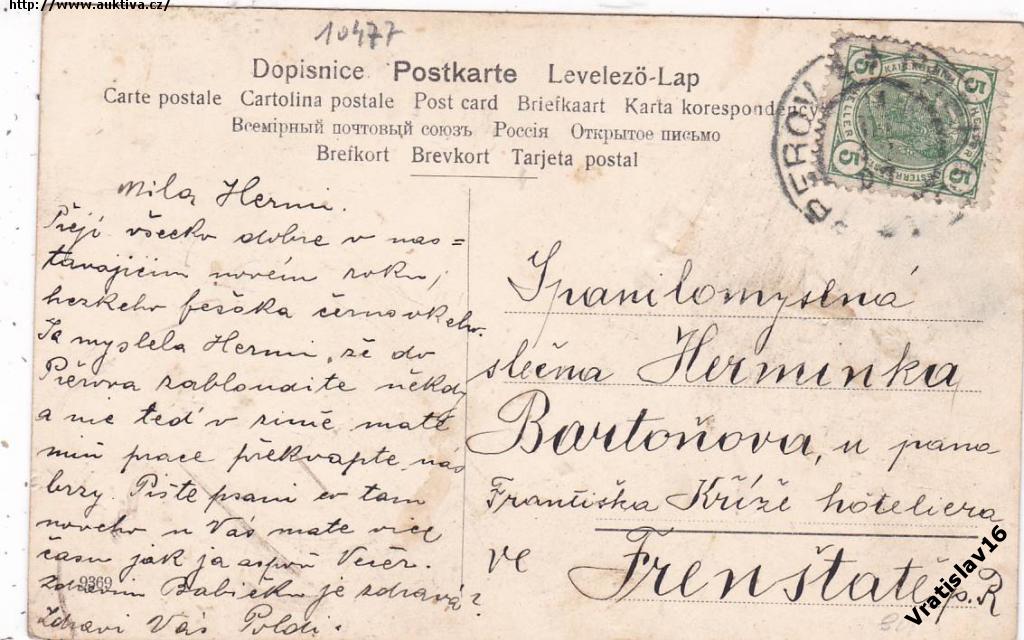 http://www.auktiva.cz/
10477
Dopisnice Postkarte Levelező-Lap
Carte postale Cartolina postale Post card Briefkaart Karta korespondency
Всемірный почтовый союзъ Россія Открытое письмо
Brefkort Brevkort Tarjeta postal
5 5 5 5
PŘEROV
Mila Hermi.
Přeji všecko dobre v nas=
tavajicim novém roku,
hezkeho fešáka
Ja myslela Hermi, že do
Přerova zabloudite někdy
a nic teď v zimě mate
miň prace překvapte nás
brzy. Pište psani co tam
noveho u Vás mate vice
času jak ja aspoň Večer.
zdravim Babičku je zdravá?
Zdraví Vás Poldi.
9369
Spanilomyslná
slečna Herminka
Bartoňova, u pana
Františka Kříže hoteliera
ve Frenštatě p. R
Vratislav16